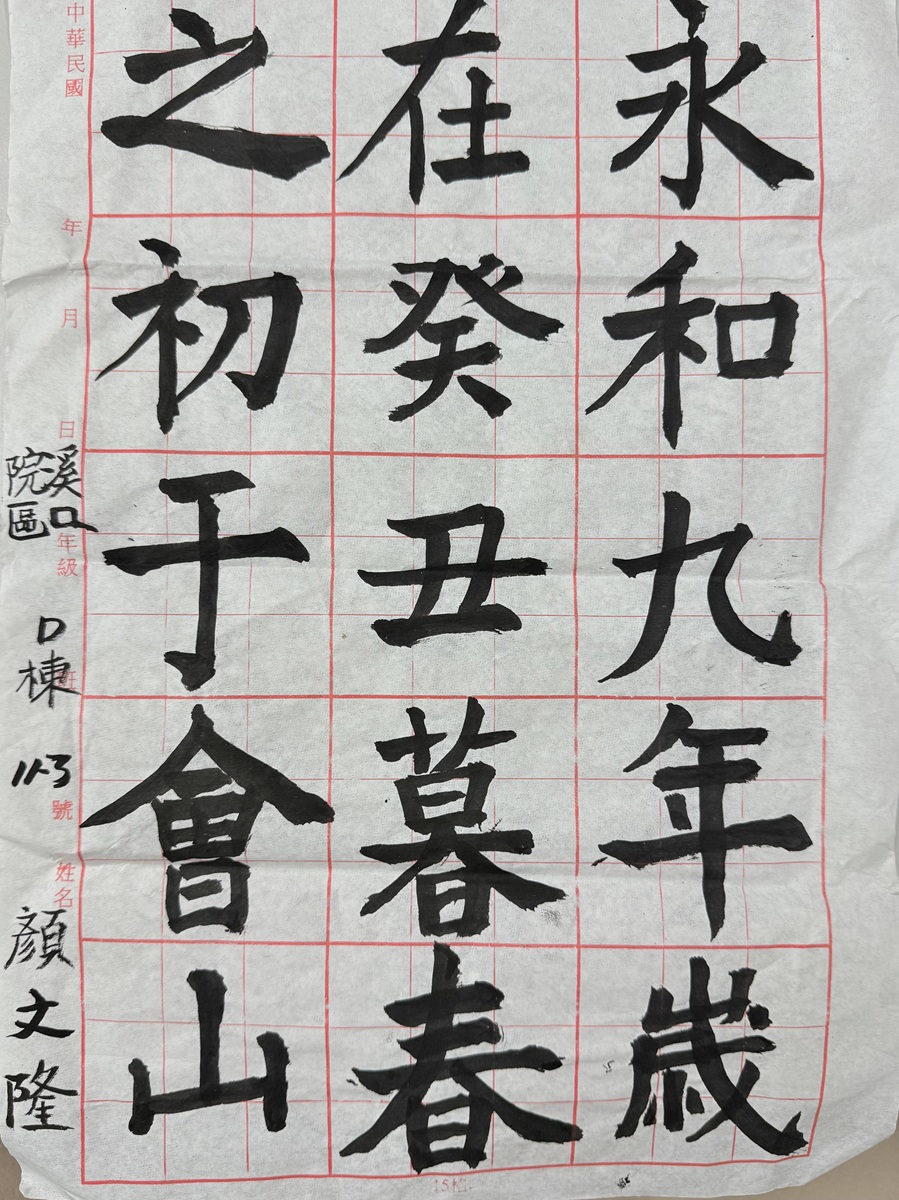 永和九年歲
在癸丑暮春
之初于會山
中華民國 年 月 日
年級
號
姓名
溪口
院區
D棟
113
顏文隆